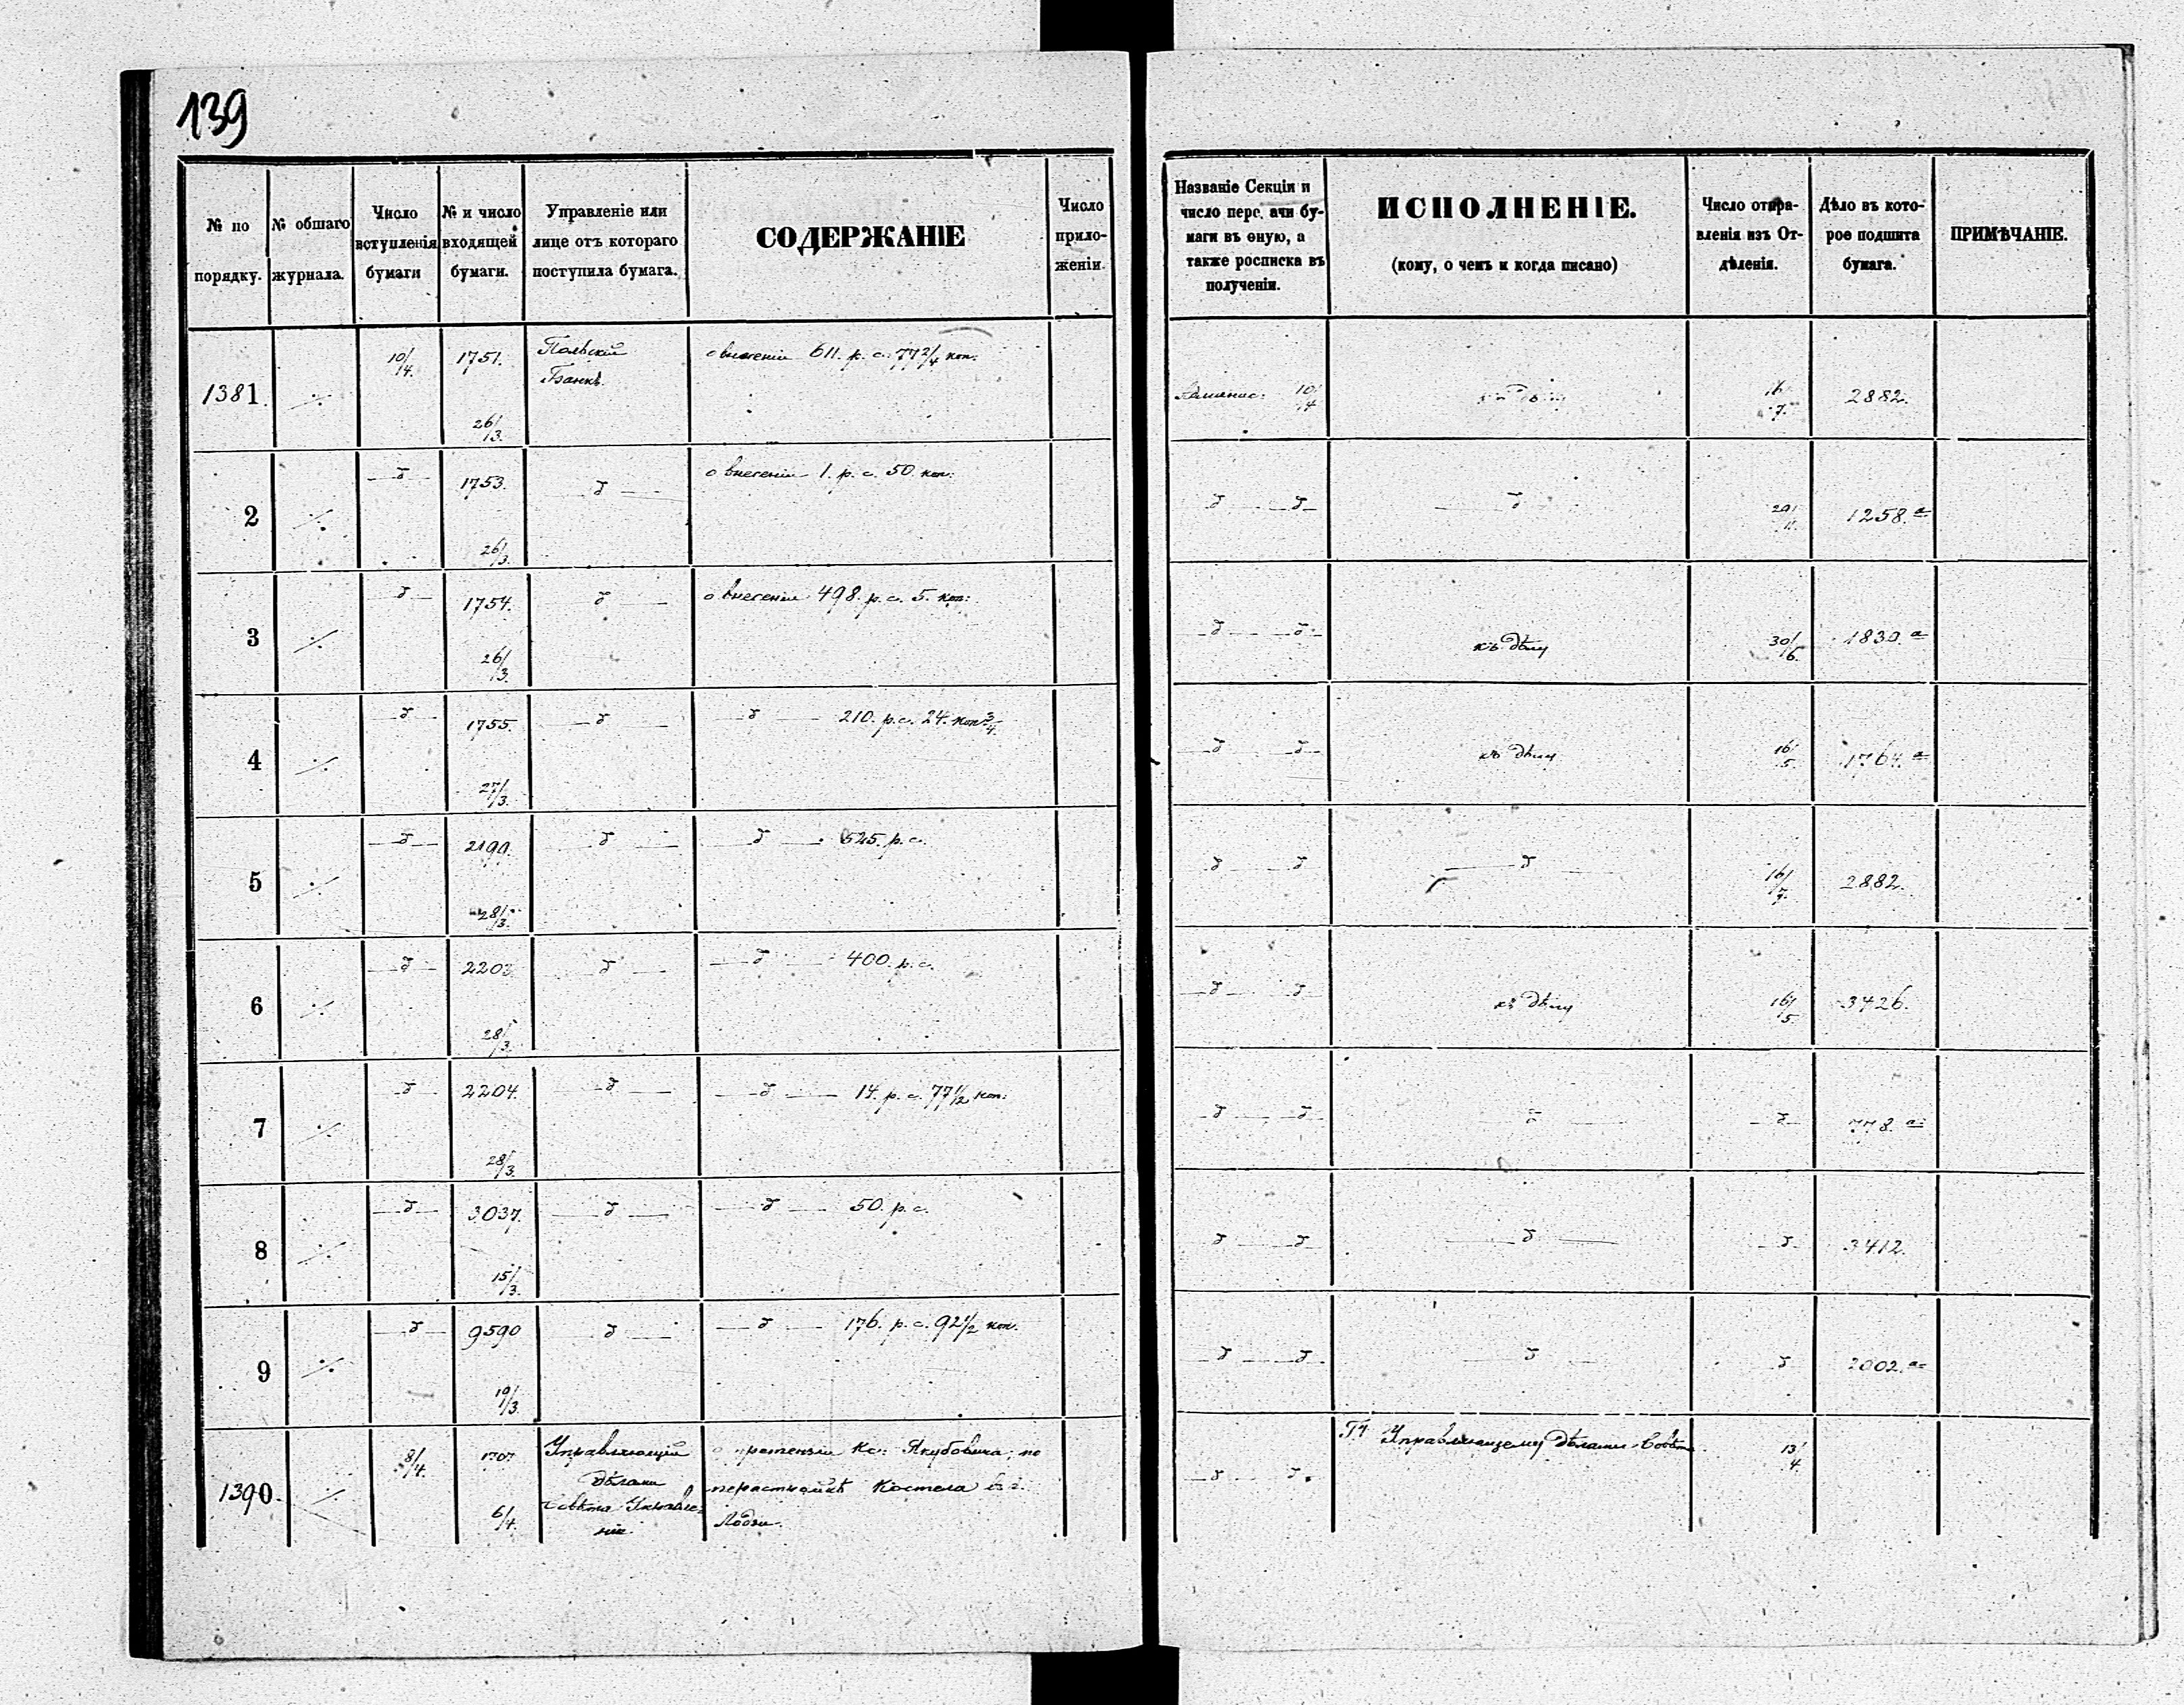 139
№ по порядку.
№ обшаго журнала.
Число вступленія бумаги
№ и число входящей бумаги.
Управленіе или лице отъ котораго поступила бумага.
СОДЕРЖАНІЕ
Число приложеніи.
Названіе Секціи и число пере, ачи бумаги въ оную, а также росписка въ полученіи.
ИСПОЛНЕНІЕ.
(кому, о чемъ и когда писано)
Число отправленія изъ Отдѣленія.
Дѣло въ которое подшита бумага.
ПРИМѢЧАНІЕ.
1381. ·/. 10/4. 1751. 26/3. Польскій Банкъ. о внесеніи 611. р. с. 77 2/4 коп: 10/4 16/7. 2882.
2 ·/. —д— 1753. 26/3. —д— о внесеніи 1. р. с. 50. коп: —д— —д— —д— 1258. а
3 ·/. д— 1754. 26/3. —д— о внесеніи 498. р. с. 5. коп: —д— —д— къ дѣлу 30/6. 1830. а
4 ·/. —д— 1755. 27/3. —д— —д— 210. р. с. 24. коп 3/4. —д— —д— къ дѣлу 16/5. 1764. а
5 ·/. —д— 2190. 28/3. —д— —д— 525. р. с. —д— —д— —д— 16/7. 2882.
6 ·/. —д— 28/3. —д— —д— 400. р. с. —д— —д— къ дѣлу 16/5. 3426.
7 ·/. —д— 2204. 28/3. —д— —д— 14. р. с. 77 1/2 коп: —д— —д— —д— —д— 778. а
8 ·/. —д— 3037. 15/3. —д— —д— 50. р. с. —д— —д— —д— —д— 3412.
9 ·/. —д— 9590 19/3. —д— —д— 176. р. с. 92 1/2 коп. —д— —д— —д— —д— 2002. а
1390. ·/. 8/4. 1707 6/4. Управляющій дѣлами Совѣта Управленія. о претензіи Кс: Якубовича, по перестройкѣ Костела въ г. Лодзи. —д— д. Управляющему дѣлами Совѣта 13/4.